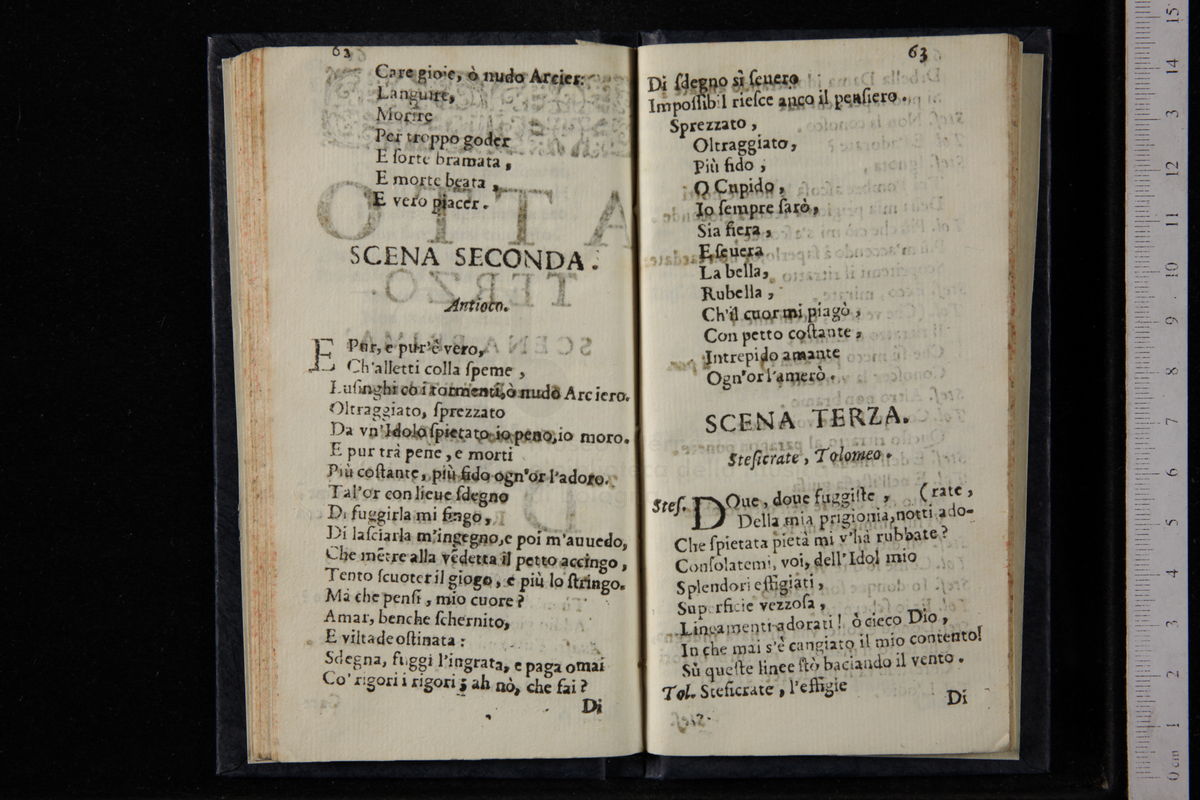 63
Care gioie, ò nudo Arcier:
Languire,
Morire
Per troppo goder
E sorte bramata,
E morte beata,
E vero piacer.
SCENA SECONDA.
Antioco.
E Pur, e pur'è vero,
Ch'alletti colla speme,
Lusinghi cõ i tormenti, ò nudo Arciero.
Oltraggiato, sprezzato
Da vn'Idolo spietato io peno, io moro.
E pur trà pene, e morti
Più costante, più fido ogn'or l'adoro.
Tal'or con lieue sdegno
Di fuggirla mi fingo,
Di lasciarla m'ingegno, e poi m'auuedo,
Che mẽtre alla vẽdetta il petto accingo,
Tento scuoter il giogo, e più lo stringo.
Mà che pensi, mio cuore?
Amar, benche schernito,
E viltade ostinata:
Sdegna, fuggi l'ingrata, e paga omai
Co' rigori i rigori; ah nò, che fai?
Di
63
Di sdegno sì seuero
Impossibil riesce anco il pensiero.
Sprezzato,
Oltraggiato,
Più fido,
O Cupido,
Io sempre sarò,
Sia fiera,
E seuera
La bella,
Rubella,
Ch'il cuor mi piagò,
Con petto costante,
Intrepido amante
Ogn'or l'amerò.
SCENA TERZA.
Steficrate, Tolomeo.
Stef. DOue, doue fuggiste, (rate,
Della mia prigionia, notti ado-
Che spietata pietà mi v'hà rubbate?
Consolatemi, voi, dell'Idol mio
Splendori effigiati,
Superficie vezzosa,
Lineamenti adorati! ò cieco Dio,
In che mai s'è cangiato il mio contento!
Sù queste linee stò baciando il vento.
Tol. Steficrate, l'effigie
Di
15
14
13
12
11
10
9
8
7
6
5
4
3
2
1
0 cm